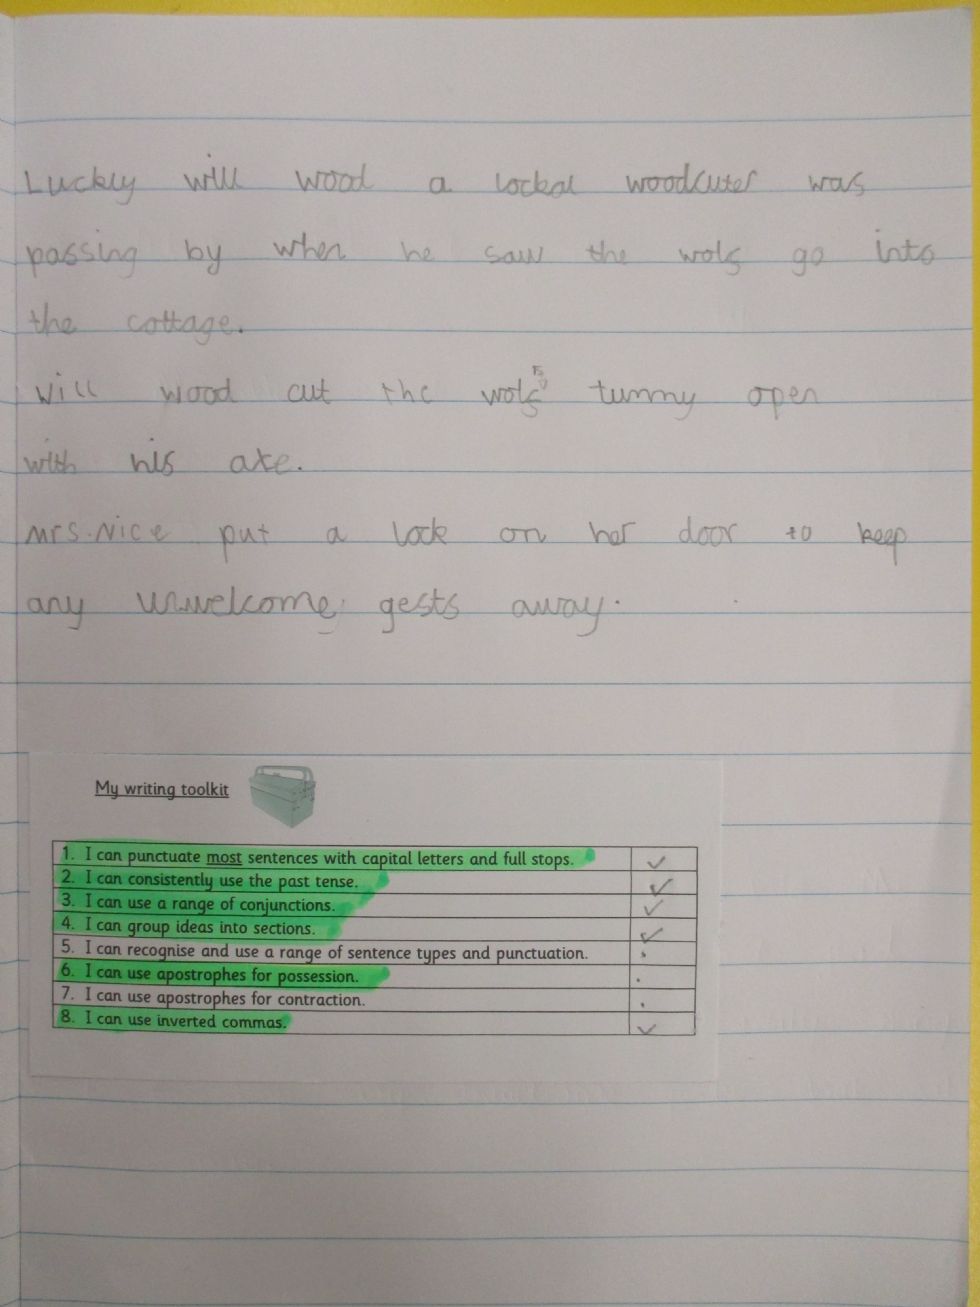 Luckly will wood a lockal woodcuter was
passing by when he saw the wols go into
the cottage.
Will wood cut the wols tummy open
with his axe.
Mrs.Nice put a lock on her door to keep
any unwelcome gests away.
My writing toolkit
1. I can punctuate most sentences with capital letters and full stops. ✓
2. I can consistently use the past tense. ✓
3. I can use a range of conjunctions. ✓
4. I can group ideas into sections. ✓
5. I can recognise and use a range of sentence types and punctuation. .
6. I can use apostrophes for possession. .
7. I can use apostrophes for contraction. .
8. I can use inverted commas. ✓